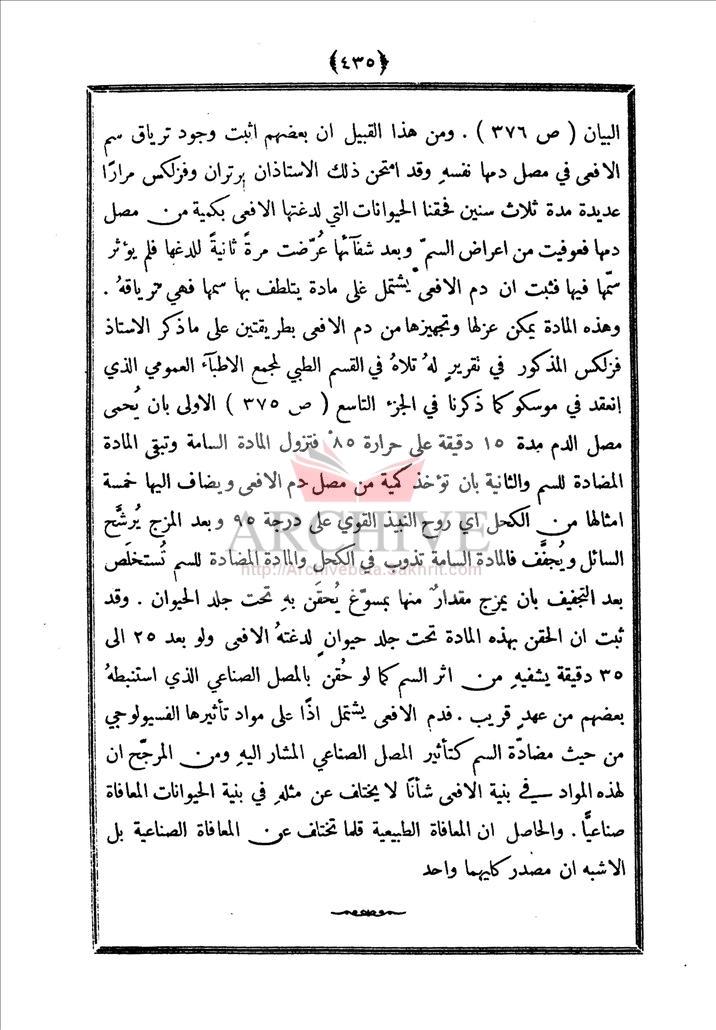 ﴿٤٣٥﴾
البيان ( ص ٣٧٦ ) . ومن هذا القبيل ان بعضهم اثبت وجود ترياق سم
الافعى في مصل دمها نفسهِ وقد امتحن ذلك الاستاذان برتران وفزلكس مرارًا
عديدة مدة ثلاث سنين فحقنا الحيوانات التي لدغتها الافعى بكمية من مصل
دمها فعوفيت من اعراض السمّ وبعد شفآئها عُرّضت مرةً ثانيةً للدغها فلم يؤثر
سمّها فيها فثبت ان دم الافعى يشتمل على مادة يتلطف بها سمها فهي ترياقهُ .
وهذه المادة يمكن عزلها وتجهيزها من دم الافعى بطريقتين على ما ذكر الاستاذ
فزلكس المذكور في تقريرٍ لهُ تلاهُ في القسم الطبي لمجمع الاطبآء العمومي الذي
انعقد في موسكو كما ذكرنا في الجزء التاسع ( ص ٣٧٥ ) الاولى بان يُحمى
مصل الدم مدة ١٥ دقيقة على حرارة ٨٥° فتزول المادة السامة وتبقى المادة
المضادة للسم والثانية بان تؤخذ كمية من مصل دم الافعى ويضاف اليها خمسة
امثالها من الكحل اي روح النبيذ القوي على درجة ٩٥ وبعد المزج يُرشَّح
السائل ويُجفَّف فالمادة السامة تذوب في الكحل والمادة المضادة للسم تُستخلَص
بعد التجفيف بان يمزج مقدارٌ منها بمسوّغ يُحقَن بهِ تحت جلد الحيوان . وقد
ثبت ان الحقن بهذه المادة تحت جلد حيوانٍ لدغتهُ الافعى ولو بعد ٢٥ الى
٣٥ دقيقة يشفيهِ من اثر السم كما لو حُقن بالمصل الصناعي الذي استنبطهُ
بعضهم من عهدٍ قريب . فدم الافعى يشتمل اذًا على مواد تأثيرها الفسيولوجي
من حيث مضادّة السم كتأثير المصل الصناعي المشار اليهِ ومن المرجّح ان
لهذه المواد في بنية الافعى شأنًا لا يختلف عن مثلهِ في بنية الحيوانات المعافاة
صناعيًّا . والحاصل ان المعافاة الطبيعية قلما تختلف عن المعافاة الصناعية بل
الاشبه ان مصدر كليهما واحد
ARCHIVE
http://Archivebeta.Sakhrit.com